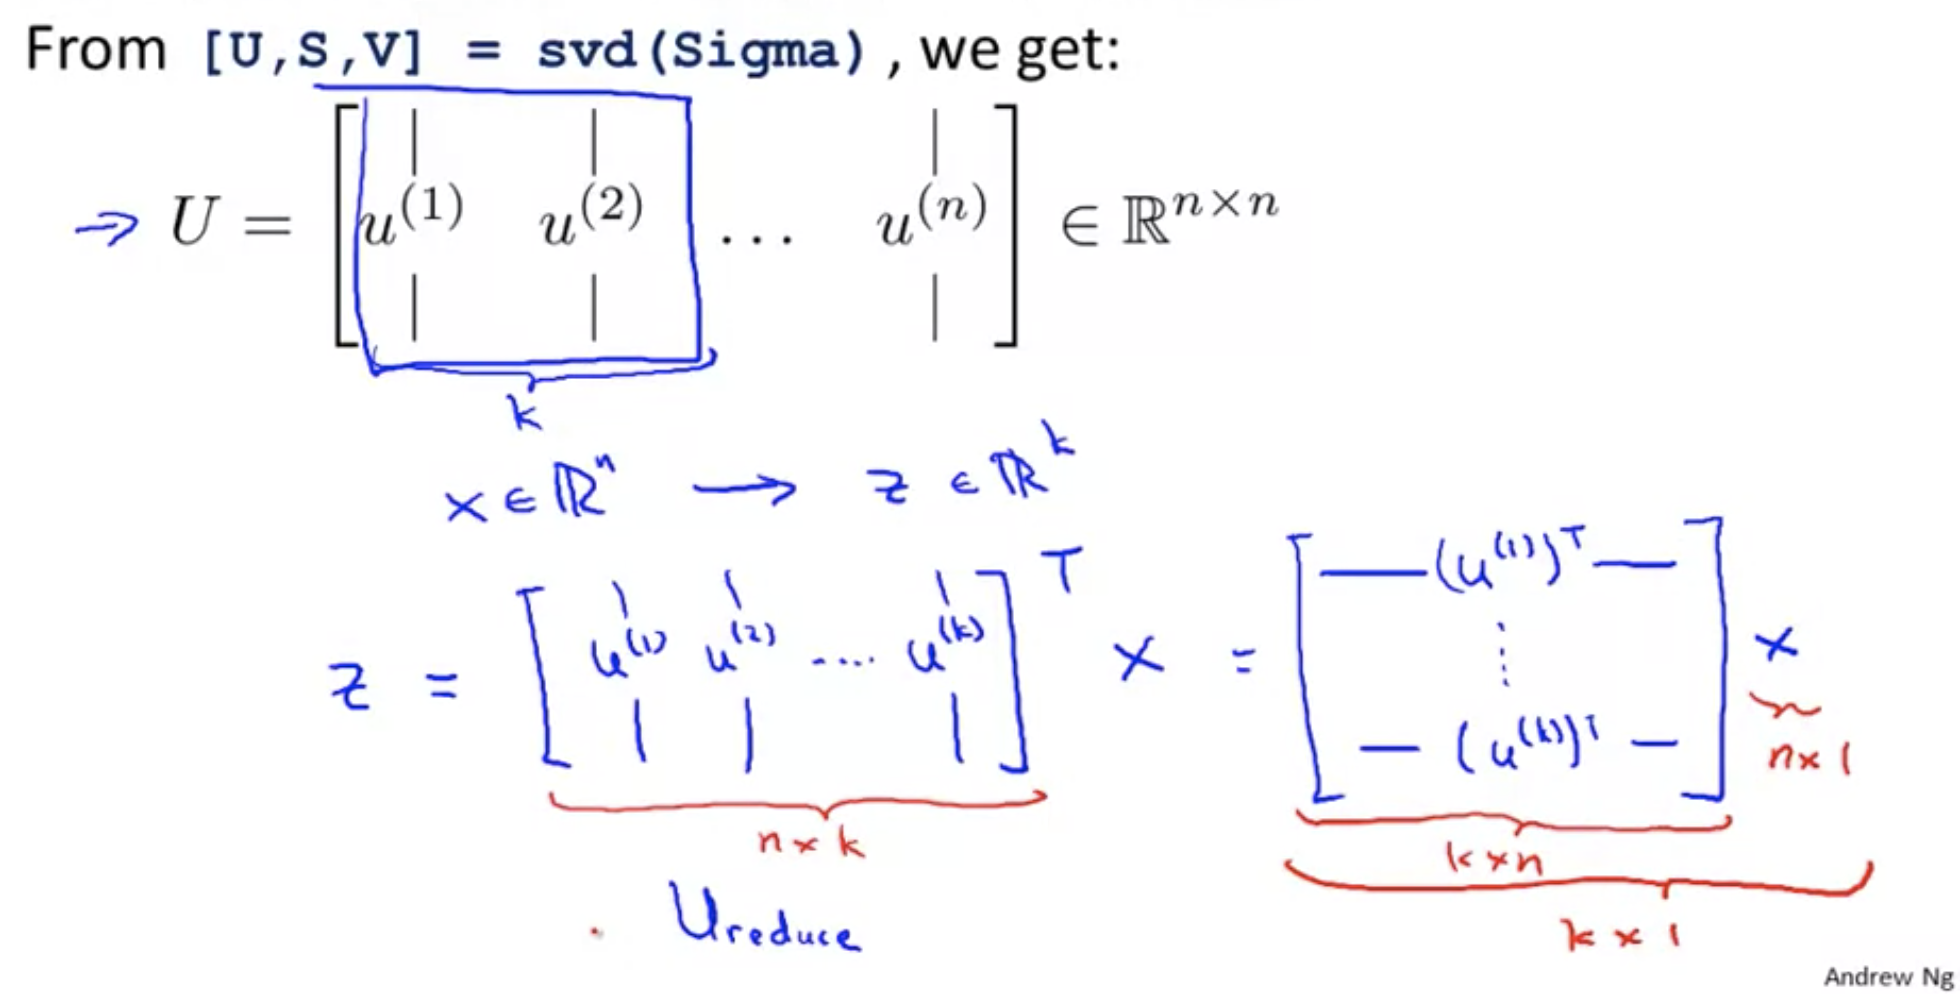 From [U,S,V] = svd(Sigma) , we get:
→ U = [ u^(1) u^(2) ... u^(n) ] ∈ ℝ^{n×n}
k
x ∈ ℝ^n → z ∈ ℝ^k
z = [ u^(1) u^(2) .... u^(k) ]^T x = [ — (u^(1))^T — ⋮ — (u^(k))^T — ] x
n × 1
n × k
k × n
U reduce
k × 1
Andrew Ng